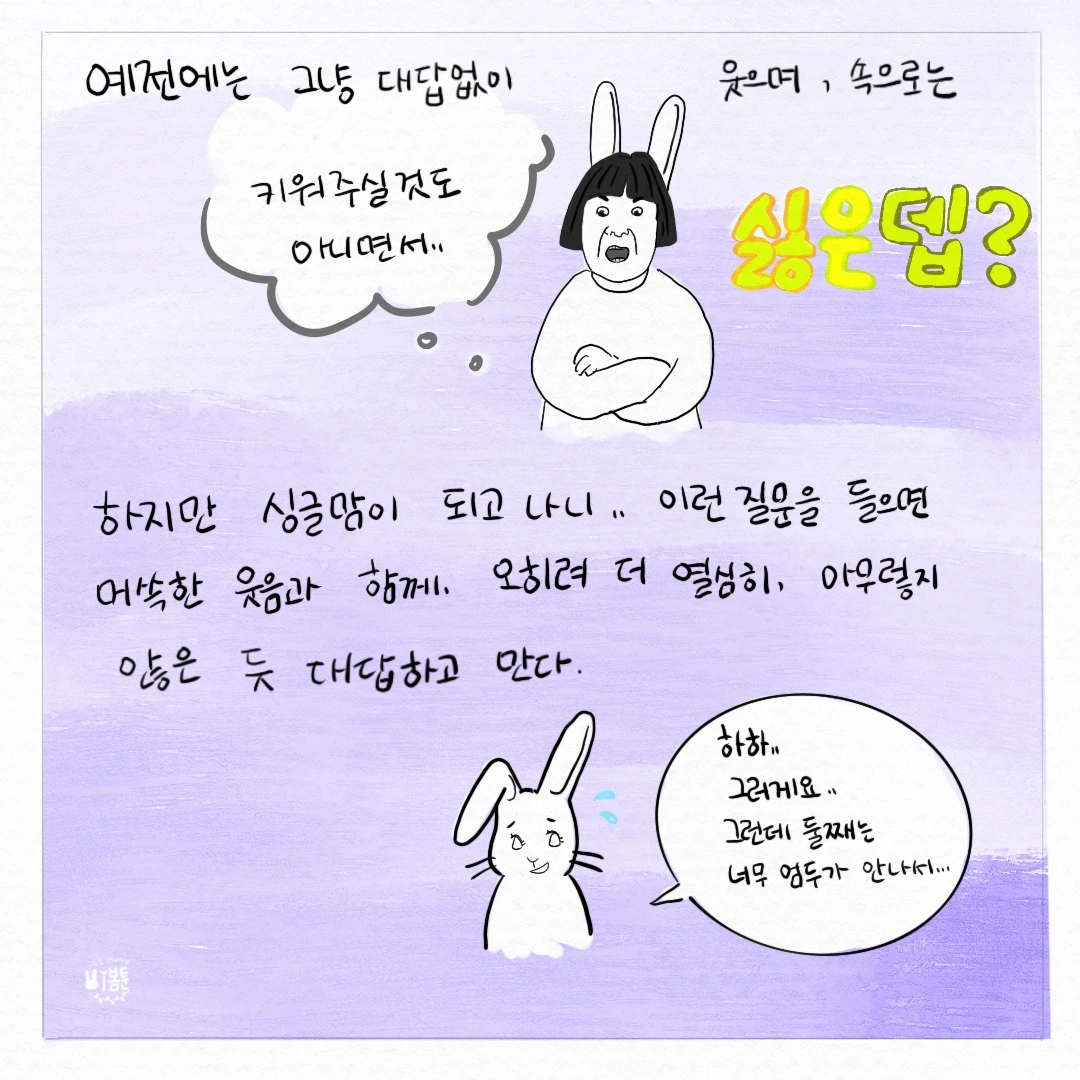 예전에는 그냥 대답없이 웃으며, 속으로는
키워주실것도
아니면서..
싫은뎁?
하지만 싱글맘이 되고 나니.. 이런 질문을 들으면
머쓱한 웃음과 함께. 오히려 더 열심히, 아무렇지
않은 듯 대답하고 만다.
하하..
그러게요..
그런데 둘째는
너무 엄두가 안나서...